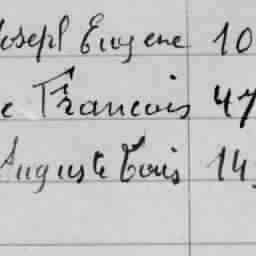 Joseph Eugene 10
e Francois 47
Auguste Louis 14